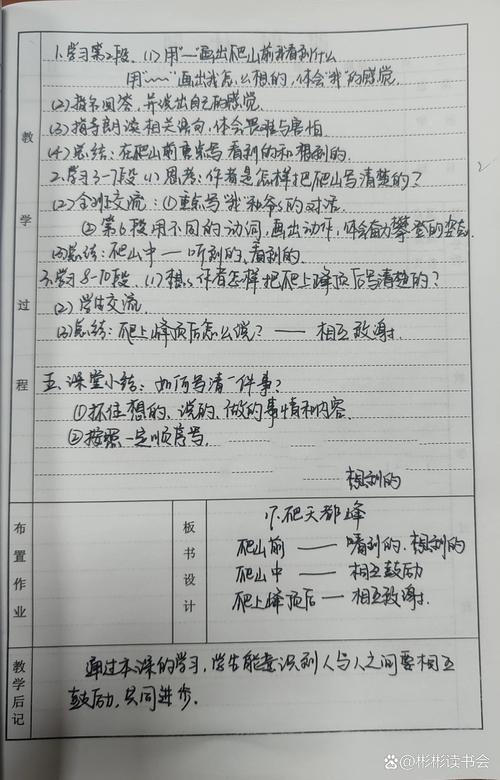 教学过程
1.学习第2段、(1)用"—"画出爬山前我看到什么
用"﹏﹏"画出我怎么想的,体会"我"的感觉.
(2)指名回答,并谈出自己的感觉.
(3)指导朗读相关语句,体会畏难与害怕.
(4)总结:在爬山前重点写看到的和想到的.
2.学习3-7段(1)思考:作者是怎样把爬山写清楚的?
(2)全班交流:①重点写"我"和爷爷的对话.
②第6段用不同的动词,画出动作,体会奋力攀登的
(3)总结:爬山中——听到的、看到的.
3.学习8-10段、(1)想:作者怎样把爬上峰顶后写清楚的?
(2)学生交流.
(3)总结:爬上峰顶后怎么说?——相互致谢.
五、课堂小结:如何写清一件事?
①抓住想的、说的、做的事情和内容.
②按照一定顺序写.
想到的
布置作业
板书设计
17.爬天都峰
爬山前——看到的.想到的
爬山中——相互鼓励
爬上峰顶后——相互致谢.
教学后记
通过本课的学习,学生能意识到人与人之间要相互
鼓励,共同进步.
@彬彬读书会